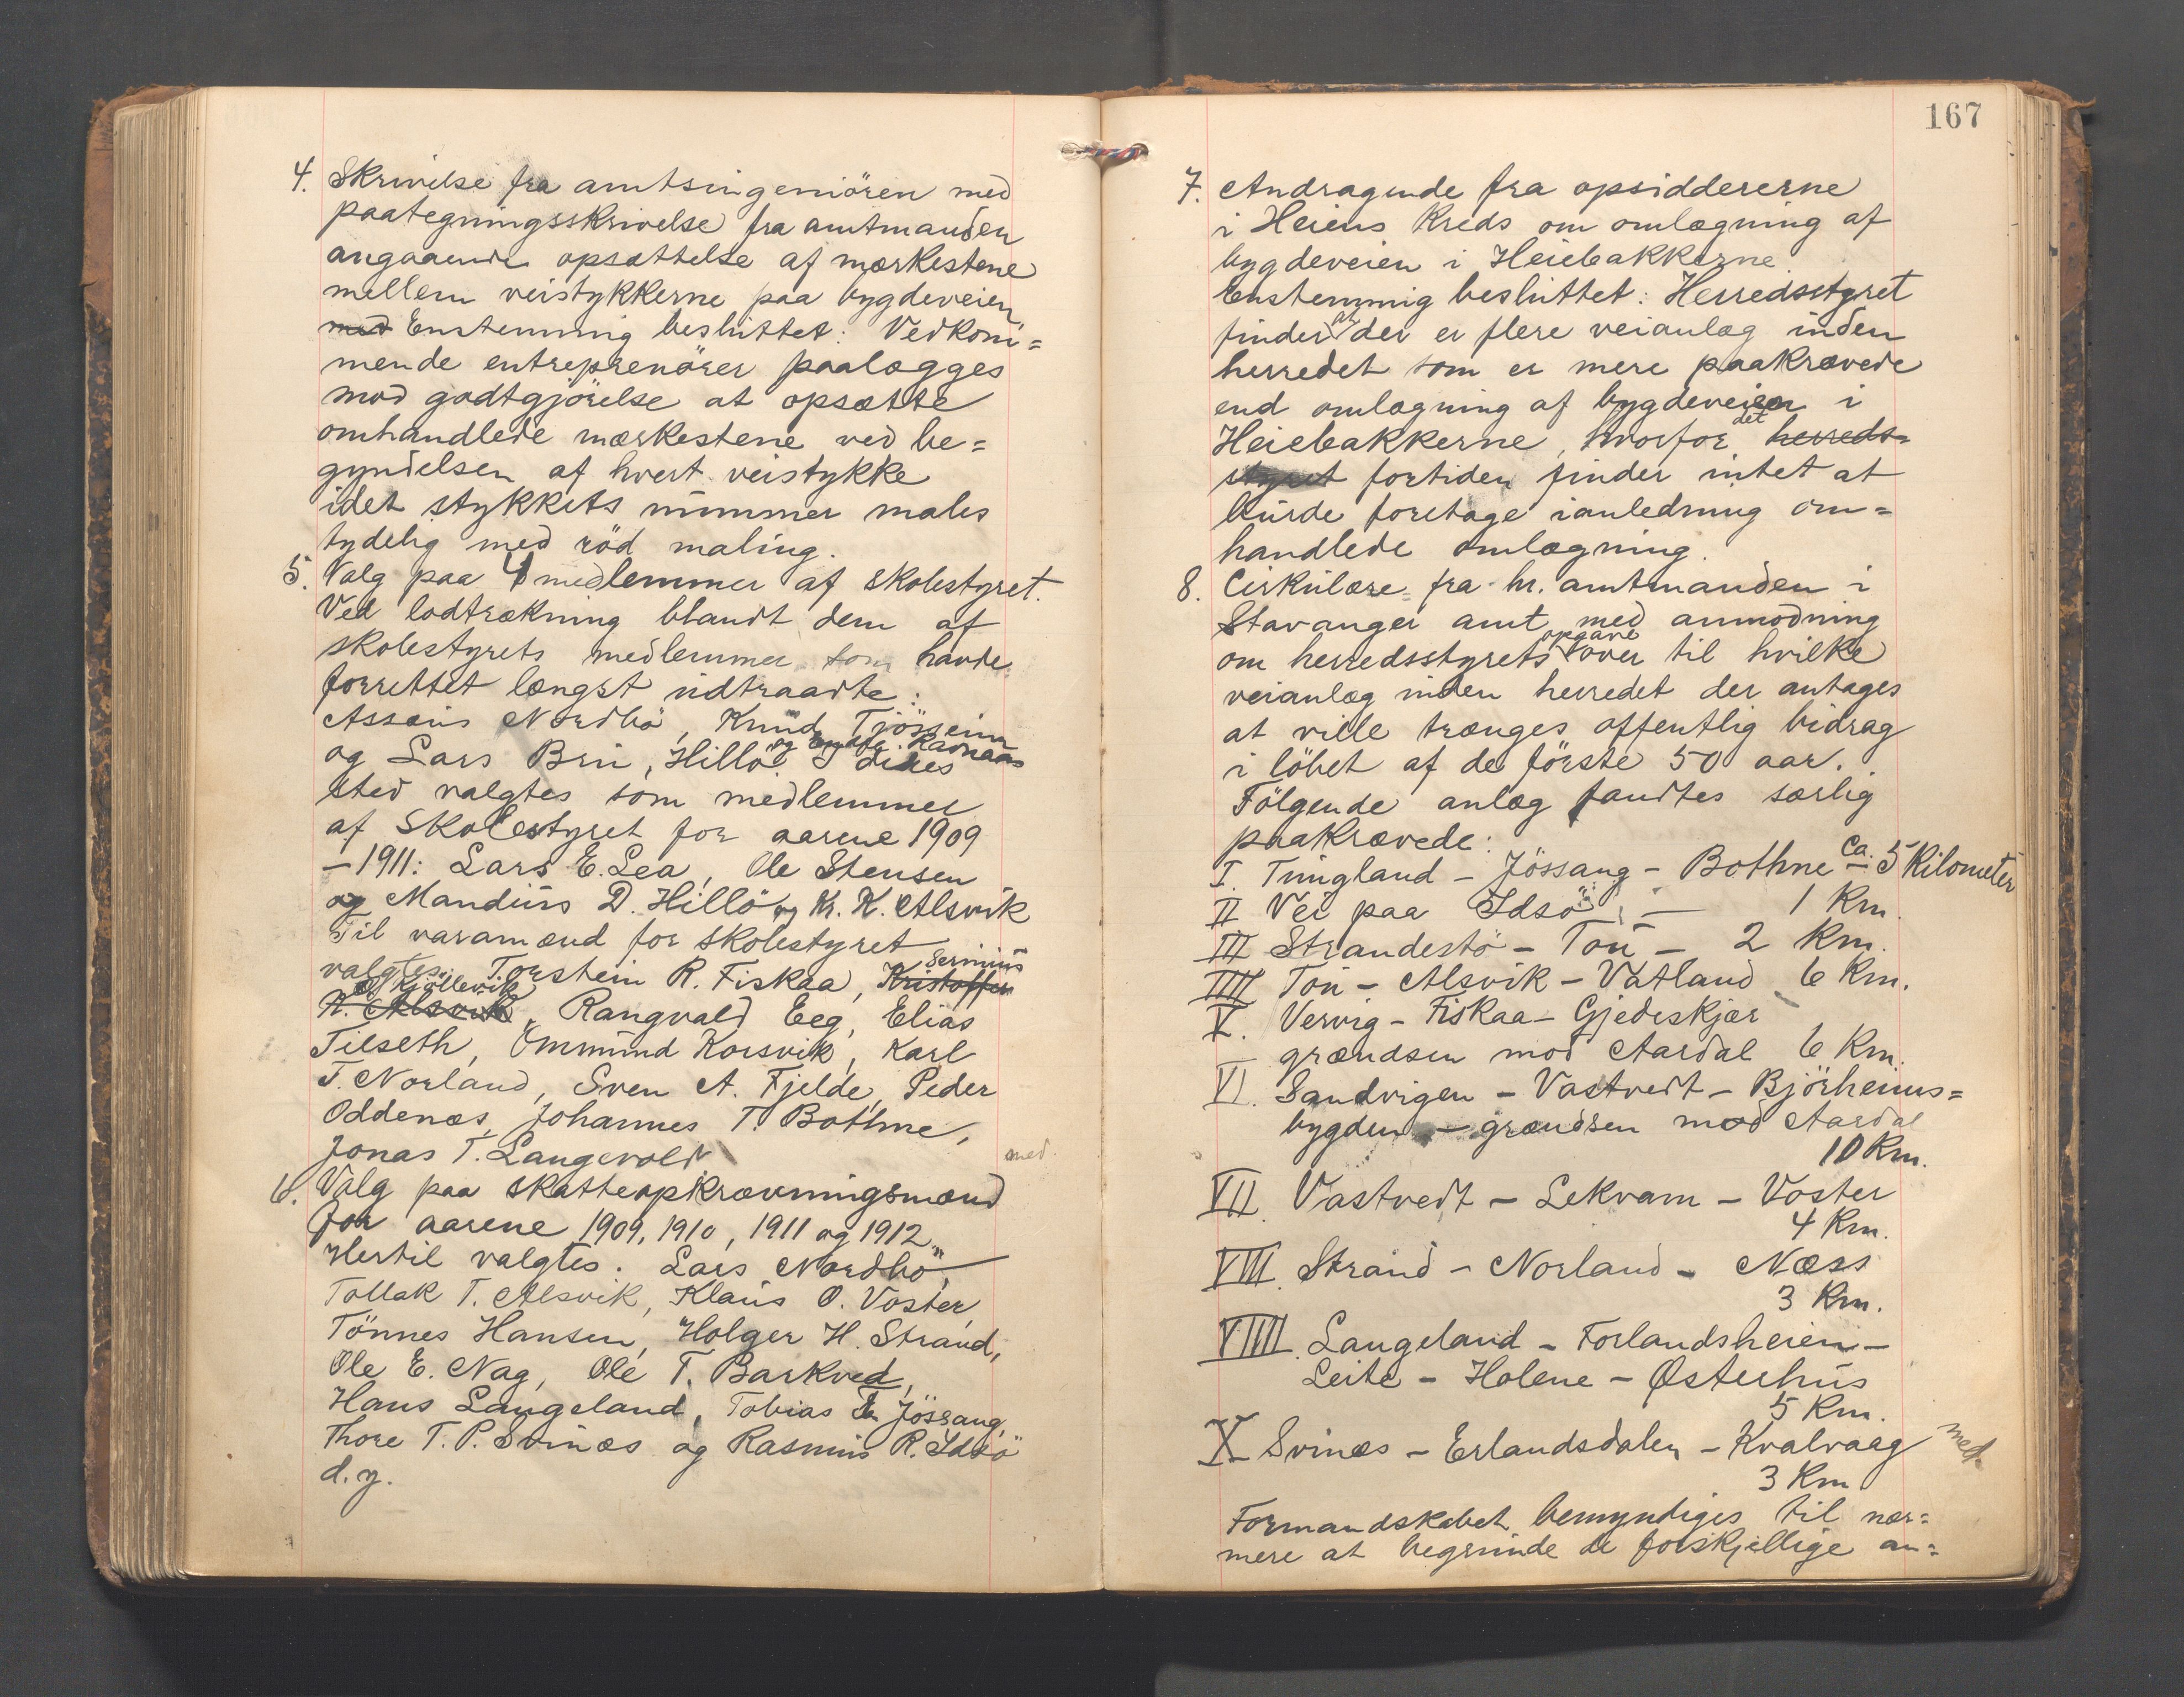 4. Skrivelse fra amtsingeniören med
paategningsskrivelse fra amtmanden
angaaende opsættelse af mærkestene
mellem veistykkerne paa bygdeveien
med Enstemmig besluttet: Vedkom=
mende entreprenörer paalægges
mod godtgjörelse at opsætte
omhandlede mærkestene ved be=
gyndelsen af hvert veistykke
idet stykkets nummer males
tydelig med röd maling.
5. Valg paa 4 medlemmer af skolestyret.
Ved lodtrækning blandt dem af
skolestyrets medlemmer som havde
forrettet længst udtraadte:
Assøus Nordbö, Knud Tjössein
og Lars Bru, Hillö. og Ravnaas I deres
sted valgtes som medlemmer
af Skolestyret for aarene 1909
– 1911: Lars E. Lea, Ole Stensen
og Mandius D. Hillö og Kr. K. Alsvik
Til varamænd for skolestyret
valgtes: Torstein R. Fiskaa, Kristoffer Serinius
K. Alsvik Kjöllevik, Rangvald Eeg, Elias
Tilseth, Ommund Korsvik, Karl
T. Norland, Sven A. Fjelde, Peder
Oddenæs, Johannes T. Bothne,
Jonas T. Langevold
med.
6. Valg paa skatteopkrævningsmænd
for aarene 1909, 1910, 1911 og 1912.
Hertil valgtes: Lars Nordbö,
Tollak T. Alsvik, Klaus O. Voster,
Tönnes Hansen, Holger H. Strand,
Ole E. Nag, Ole T. Barkved,
Hans Langeland, Tobias Jössang,
Thore T. P. Svinæs og Rasmus R. Idsö
d.y.
167
7. Andragende fra opsiddererne
i Heiens Kreds om omlægning af
bygdeveien i Heiebakkerne.
Enstemmig besluttet: Herredsstyret
finder at der er flere veianlæg inden
herredet som er mere paakrævede
end omlægning af bygdeveien i
Heiebakkerne, hvorfor det herreds=
styret fortiden finder intet at
burde foretage ianledning om=
handlede omlægning.
8. Cirkulære fra hr. amtmanden i
Stavanger amt med anmodning
om herredsstyrets opgave over til hvilke
veianlæg inden herredet der antages
at ville trænges offentlig bidrag
i löbet af de förste 50 aar.
Fölgende anlæg fandtes særlig
paakrævede:
I. Tungland – Jössang – Bothne – ca. 5 Kilometer
II Vei paa Idsö – 1 Km.
III Strandestö – Tou – 2 Km.
IIII Tou – Alsvik – Vatland 6 Km.
V. Vervig – Fiskaa – Gjedeskjær
grændsen mod Aardal 6 Km.
VI. Sandvigen – Vastvedt – Björheims=
bygden – grændsen mod Aardal
10 Km.
VII. Vastvedt – Lekvam – Voster
4 Km.
VIII. Strand – Norland – Næss
3 Km.
VIIII. Langeland – Forlandsheien –
Leite – Holene – Østerhus
5 Km.
X Svinæs – Erlandsdalen – Kvalvaag
3 Km
med
Formandskabet bemyndiges til nær=
mere at begrunde de forskjellige an=